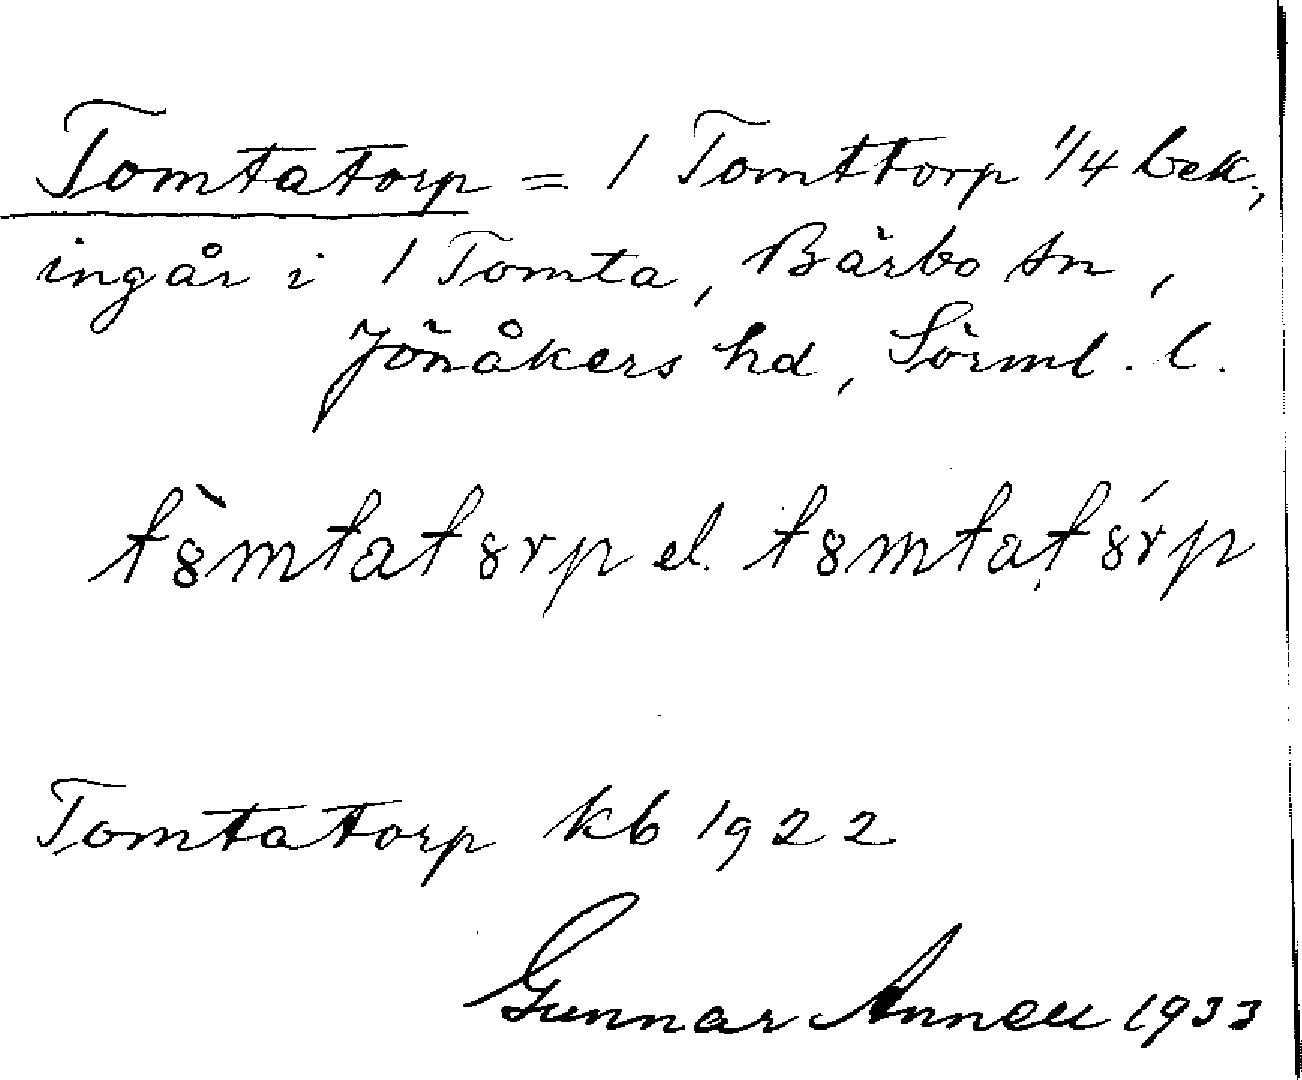 Tomtatorp = 1 Tomttorp 1/4 bek,
ingår i 1 Tomta, Bärbo sn,
Jönåkers hd, Sörml. l.
t8̀mtat8rp el. t8mtat8́rp
Tomtatorp kb 1922
Gunnar Annell 1933